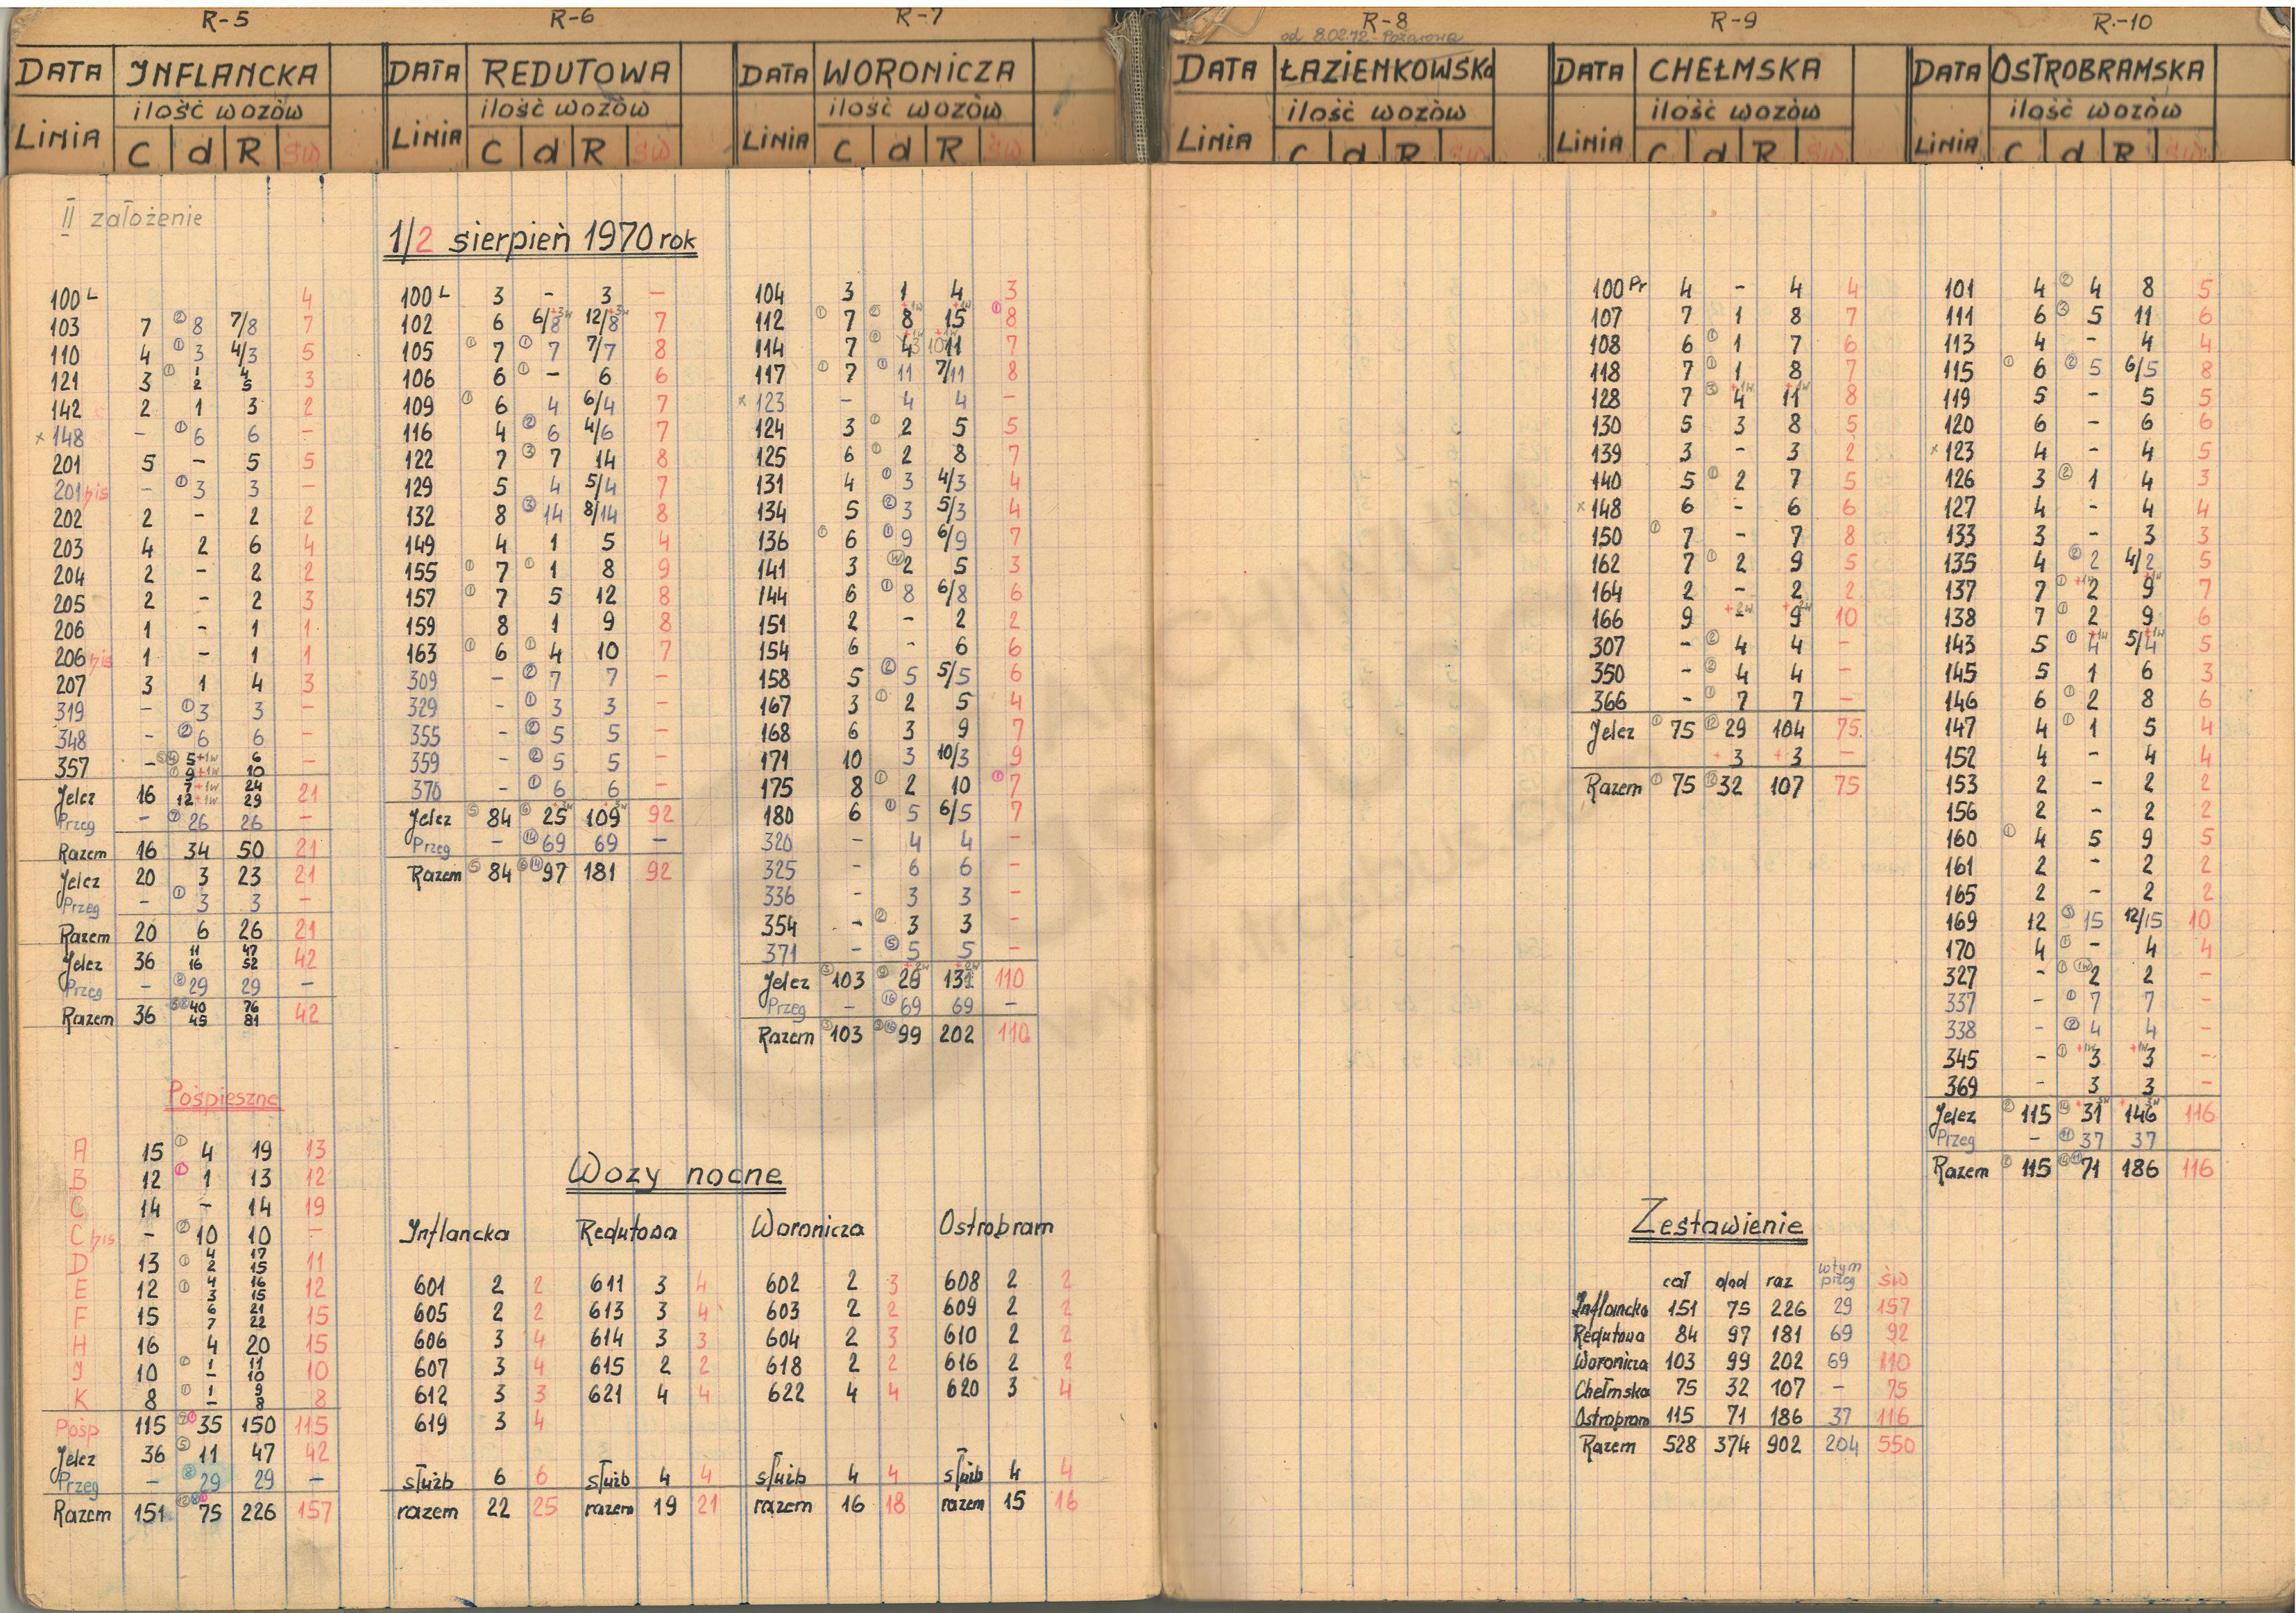 R-5
DATA INFLANCKA
ilość wozów
LINIA C d R św
II założenie
100 L 4
103 7 ② 8 7/8 7
110 4 ① 3 4/3 5
121 3 ① 1/2 4/5 3
142 2 1 3 2
x 148 - ① 6 6 -
201 5 - 5 5
201 bis - ① 3 3 -
202 2 - 2 2
203 4 2 6 4
204 2 - 2 2
205 2 - 2 3
206 1 - 1 1
206 bis 1 - 1 1
207 3 1 4 3
319 - ① 3 3 -
348 - ② 6 6 -
357 - 5+1w 6 -
9+1w 10
Jelcz 16 7+1w 24 21
12+1w 29
Przeg - ⑦ 26 26 -
Razem 16 34 50 21
Jelcz 20 3 23 21
Przeg - ① 3 3 -
Razem 20 6 26 21
Jelcz 36 11 47 42
16 52
Przeg - ⑧ 29 29 -
Razem 36 40 76 42
45 81
Pośpieszne
A 15 ① 4 19 13
B 12 ① 1 13 12
C 14 - 14 19
C bis - ② 10 10 -
D 13 ① 4 17 11
2 15
E 12 ① 4 16 12
3 15
F 15 6 21 15
7 22
H 16 4 20 15
J 10 ① 1 11 10
- 10
K 8 ① 1 9 8
- 8
Pośp 115 35 150 115
Jelcz 36 ⑤ 11 47 42
Przeg - ⑧ 29 29 -
Razem 151 75 226 157
R-6
DATA REDUTOWA
ilość wozów
LINIA C d R św
1/2 sierpień 1970 rok
100 L 3 - 3 -
102 6 6/8 +3w 12/8 +3w 7
105 ① 7 ① 7 7/7 8
106 6 ① - 6 6
109 ① 6 4 6/4 7
116 4 ② 6 4/6 7
122 7 ③ 7 14 8
129 5 4 5/4 7
132 8 ③ 14 8/14 8
149 4 1 5 4
155 ① 7 ① 1 8 9
157 ① 7 5 12 8
159 8 1 9 8
163 ① 6 ① 4 10 7
309 - ② 7 7 -
329 - ① 3 3 -
355 - ② 5 5 -
359 - ② 5 5 -
370 - ① 6 6 -
Jelcz ⑤ 84 ⑥ 25 +3w 109 +3w 92
Przeg - ⑭ 69 69 -
Razem ⑤ 84 ⑥ ⑭ 97 181 92
R-7
DATA WORONICZA
ilość wozów
LINIA C d R św
104 3 1 4 3
112 ① 7 ② 8 +1w 15 +1w ① 8
114 7 ① 4 11 7
117 ① 7 ① 11 7/11 8
x 123 - 4 4 -
124 3 ① 2 5 5
125 6 ① 2 8 7
131 4 ① 3 4/3 4
134 5 ② 3 5/3 4
136 ① 6 ① 9 6/9 7
141 3 (W) 2 5 3
144 6 ① 8 6/8 6
151 2 - 2 2
154 6 - 6 6
158 5 ② 5 5/5 6
167 3 ① 2 5 4
168 6 3 9 7
171 10 3 10/3 9
175 8 ① 2 10 ① 7
180 6 ① 5 6/5 7
320 - 4 4 -
325 - 6 6 -
336 - 3 3 -
354 - ② 3 3 -
371 - ⑤ 5 5 -
Jelcz ③ 103 ⑨ 28 +2w 131 +2w 110
Przeg - ⑯ 69 69 -
Razem ③ 103 ⑨ ⑯ 99 202 110
Wozy nocne
Inflancka Redutowa Woronicza Ostrobram
601 2 2 611 3 4 602 2 3 608 2 2
605 2 2 613 3 4 603 2 2 609 2 2
606 3 4 614 3 3 604 2 3 610 2 2
607 3 4 615 2 2 618 2 2 616 2 2
612 3 3 621 4 4 622 4 4 620 3 4
619 3 4
służb 6 6 służb 4 4 służb 4 4 służb 4 4
razem 22 25 razem 19 21 razem 16 18 razem 15 16
R-8
od 8.02.72 - Pożarowa
DATA ŁAZIENKOWSKA
ilość wozów
LINIA C d R św
R-9
DATA CHEŁMSKA
ilość wozów
LINIA C d R św
100 Pr 4 - 4 4
107 7 1 8 7
108 6 ① 1 7 6
118 7 ① 1 8 7
128 7 ③ 4 +1w 11 +1w 8
130 5 3 8 5
139 3 - 3 2
140 5 ① 2 7 5
x 148 6 - 6 6
150 ① 7 - 7 8
162 7 ① 2 9 5
164 2 - 2 2
166 9 +2w - 9 +2w 10
307 - ② 4 4 -
350 - ② 4 4 -
366 - ① 7 7 -
Jelcz ① 75 ⑫ 29 104 75
+3 +3 -
Razem ① 75 ⑫ 32 107 75
Zestawienie
cał dod raz w tym przeg św
Inflancka 151 75 226 29 157
Redutowa 84 97 181 69 92
Woronicza 103 99 202 69 110
Chełmska 75 32 107 - 75
Ostrobram 115 71 186 37 116
Razem 528 374 902 204 550
R.-10
DATA OSTROBRAMSKA
ilość wozów
LINIA C d R św
101 4 ② 4 8 5
111 6 ③ 5 11 6
113 4 - 4 4
115 ① 6 ② 5 6/5 8
119 5 - 5 5
120 6 - 6 6
x 123 4 - 4 5
126 3 ② 1 4 3
127 4 - 4 4
133 3 - 3 3
135 4 ② 2 4/2 5
137 7 ① +1w 2 9 +1w 7
138 7 ① 2 9 6
143 5 ① 4 +1w 5/4 +1w 5
145 5 1 6 3
146 6 ① 2 8 6
147 4 ① 1 5 4
152 4 - 4 4
153 2 - 2 2
156 2 - 2 2
160 ① 4 5 9 5
161 2 - 2 2
165 2 - 2 2
169 12 ③ 15 12/15 10
170 4 ① - 4 4
327 - ① (1w) 2 2 -
337 - ① 7 7 -
338 - ② 4 4 -
345 - ① +1w 3 +1w 3 -
369 - 3 3 -
Jelcz ② 115 ⑭ +31 3w +146 3w 116
Przeg - ⑪ 37 37
Razem ② 115 ⑭ ⑪ 71 186 116